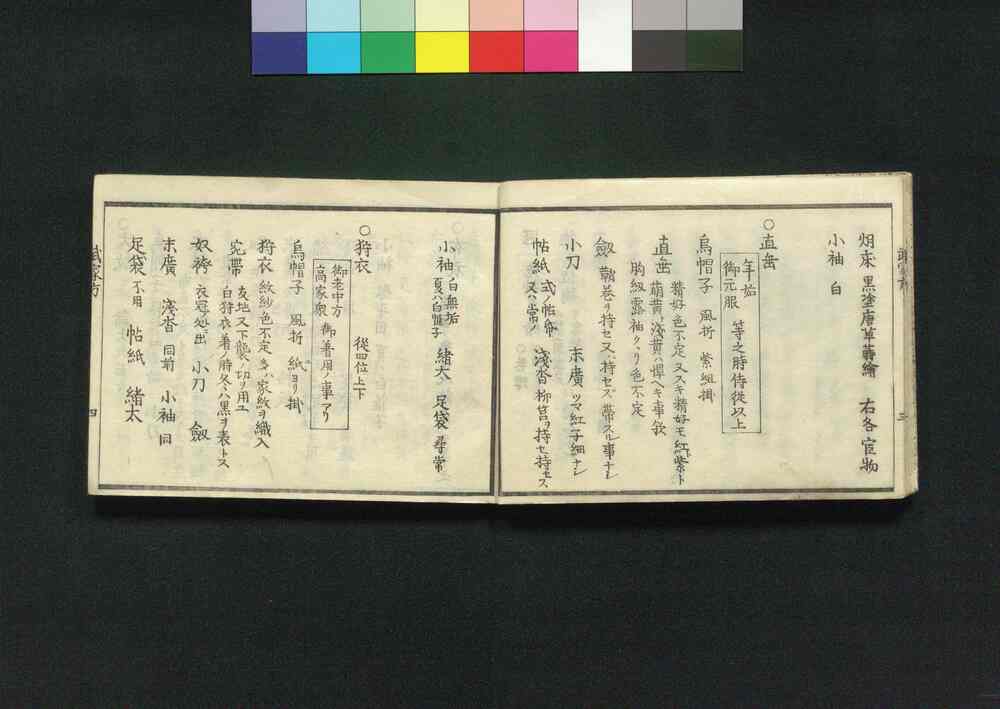 胡床 黒塗唐草蒔繪 右各官物
小袖 白
〇直垂
年始
御元服
等之時侍従以上
烏帽子 風折 紫組掛
直垂 精好色不定又スキ精好モ紅紫ト
萌黄浅黄ハ憚ヘキ事歟
胸紐露袖クヽリ色不定
劔 鞘巻ヲ持セ又ハ持セズ帯スル事ナレ
小刀 末廣 ツマ紅子細ナレ
帖紙 式ノ帖帋又ハ常ノ 浅沓 柳筥ヲ持セ持セズ
小袖 白無垢夏ハ白帷子 緒太 足袋 尋常
〇狩衣
御老中方
高家衆
御着用ノ事アリ
従四位上下
烏帽子 風折 紙ヨリ掛
狩衣 紋紗色不定多ハ家紋ヲ織入
宛帯 友地又下襲ノ切ヲ用ユ
白狩衣着ノ時冬ハ黒ヲ表トス
奴袴 衣冠処出 小刀 劔
末廣 浅沓 同前 小袖 同
足袋 不用 帖紙 緒太
武家方
三
武家方
四